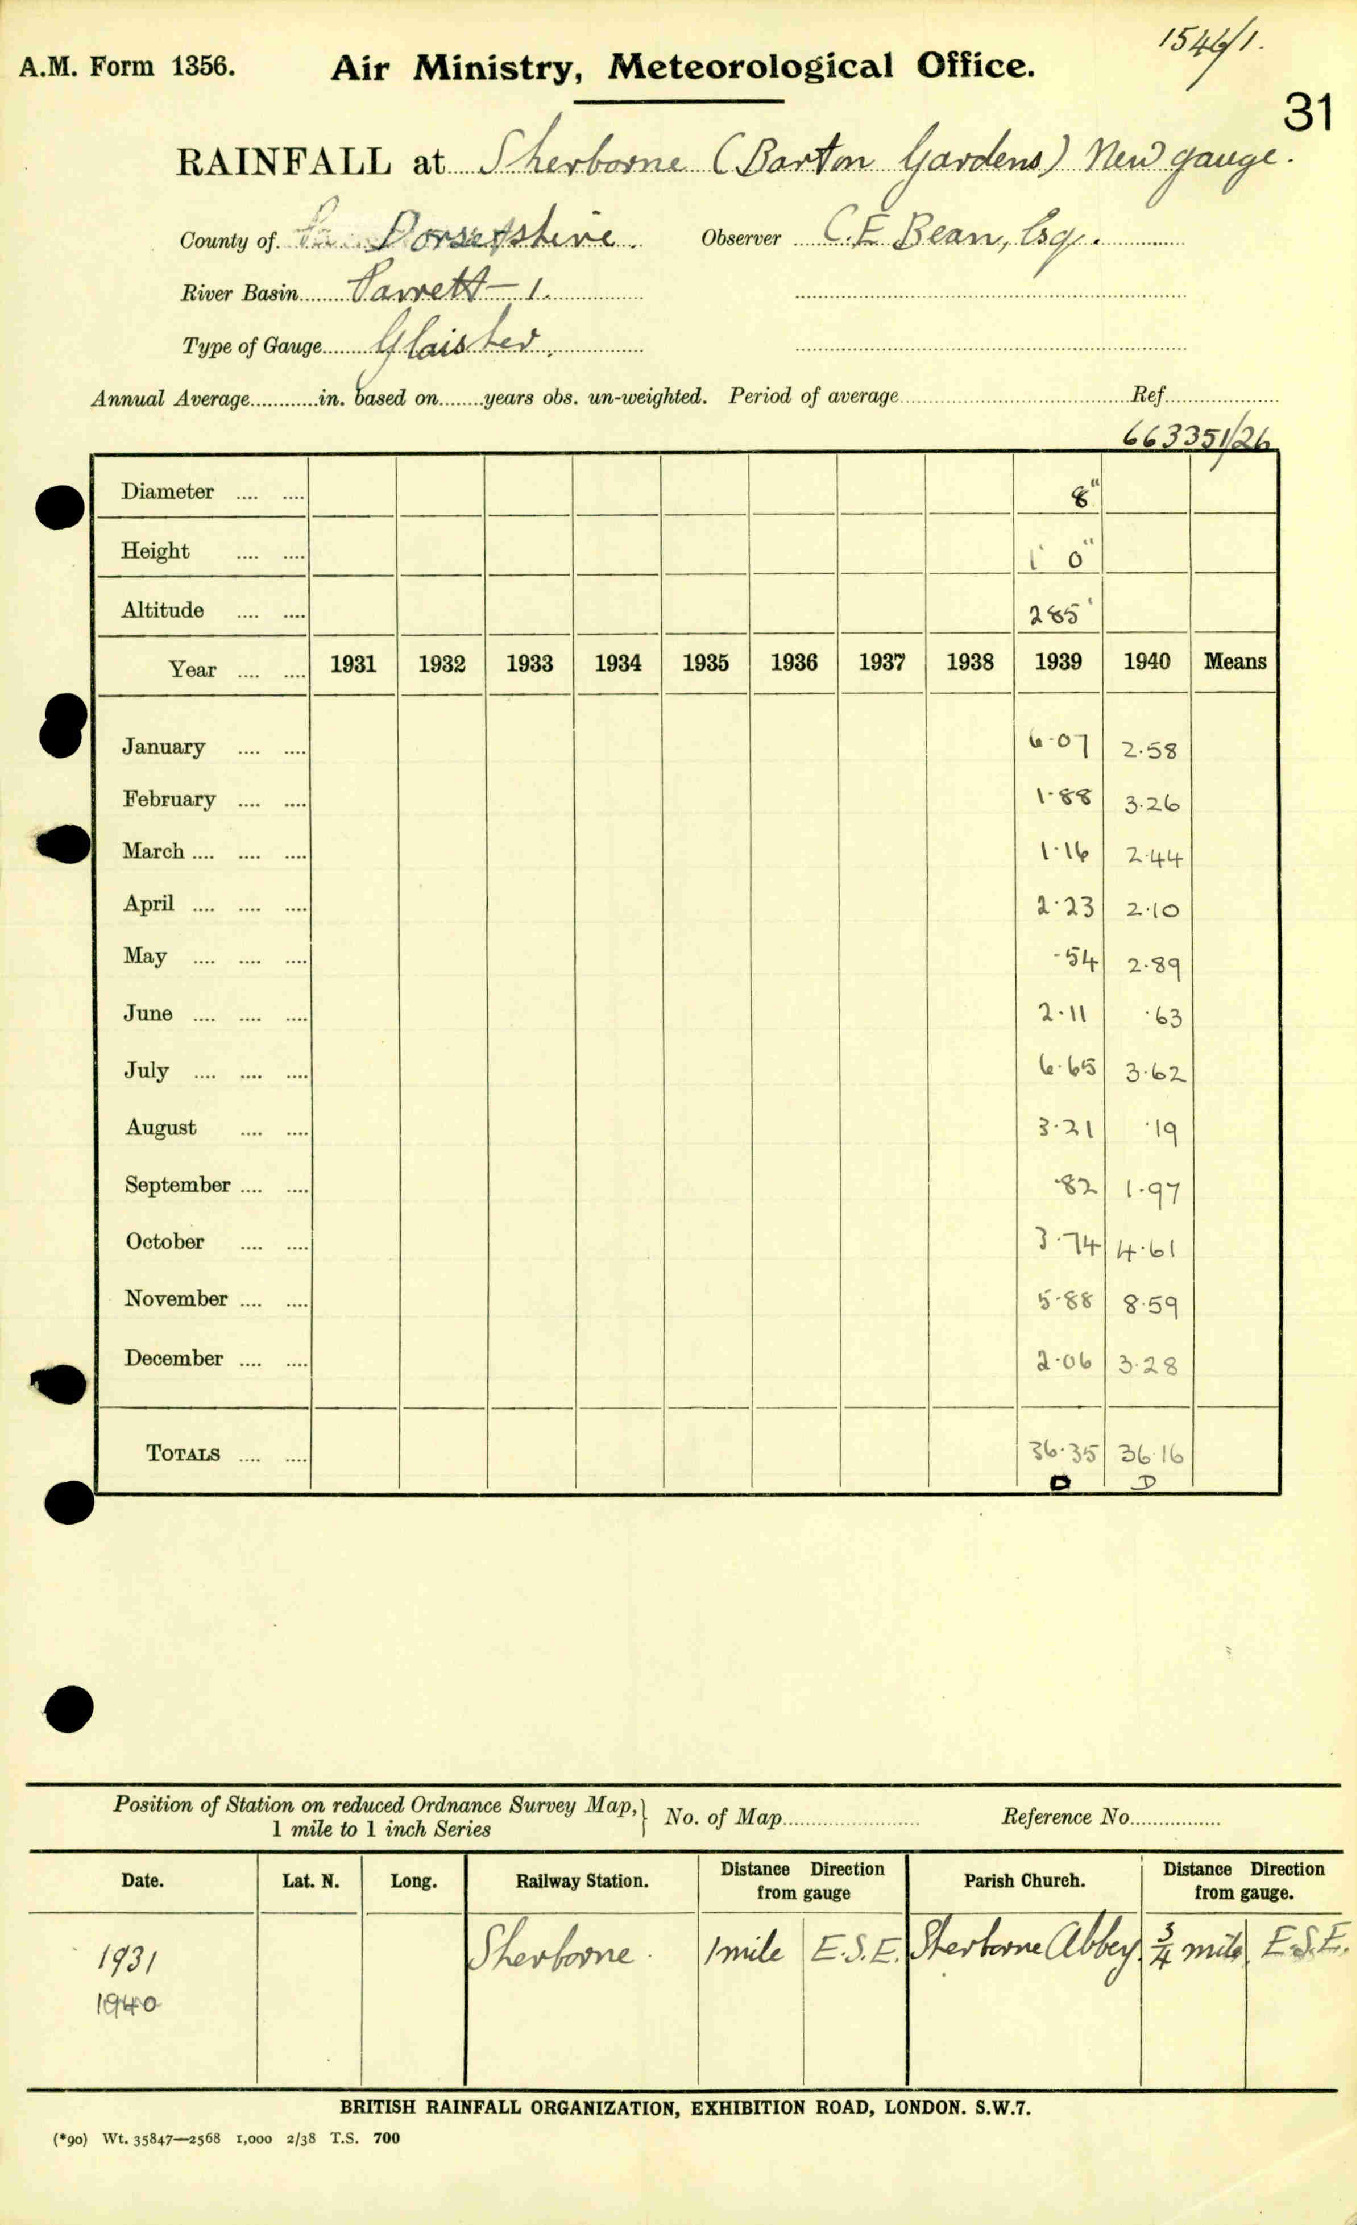 1546/1.
A.M. Form 1356. Air Ministry, Meteorological Office.
31
RAINFALL at Sherborne (Barton Gardens) New gauge.
County of Dorsetshire. Observer C.E Bean, Esq.
River Basin Parrett - 1.
Type of Gauge Glaisher.
Annual Average............in. based on........years obs. un-weighted. Period of average.................... Ref....................
663351/26
Diameter .... .... 8"
Height .... .... 1' 0"
Altitude .... .... 285'
Year .... .... 1931 1932 1933 1934 1935 1936 1937 1938 1939 1940 Means
January .... .... 6·07 2·58
February .... .... 1·88 3·26
March .... .... .... 1·16 2·44
April .... .... .... 2·23 2·10
May .... .... .... ·54 2·89
June .... .... .... 2·11 ·63
July .... .... .... 6·65 3·62
August .... .... 3·21 ·19
September .... .... ·82 1·97
October .... .... 3·74 4·61
November .... .... 5·88 8·59
December .... .... 2·06 3·28
TOTALS .... .... 36·35 36·16
D D
Position of Station on reduced Ordnance Survey Map, } No. of Map.................... Reference No....................
1 mile to 1 inch Series
Date. Lat. N. Long. Railway Station. Distance Direction from gauge Parish Church. Distance Direction from gauge.
1931 Sherborne. 1 mile E.S.E. Sherborne Abbey. 3/4 mile. E.S.E.
1940
BRITISH RAINFALL ORGANIZATION, EXHIBITION ROAD, LONDON. S.W.7.
(*90) Wt. 35847—2568 1,000 2/38 T.S. 700